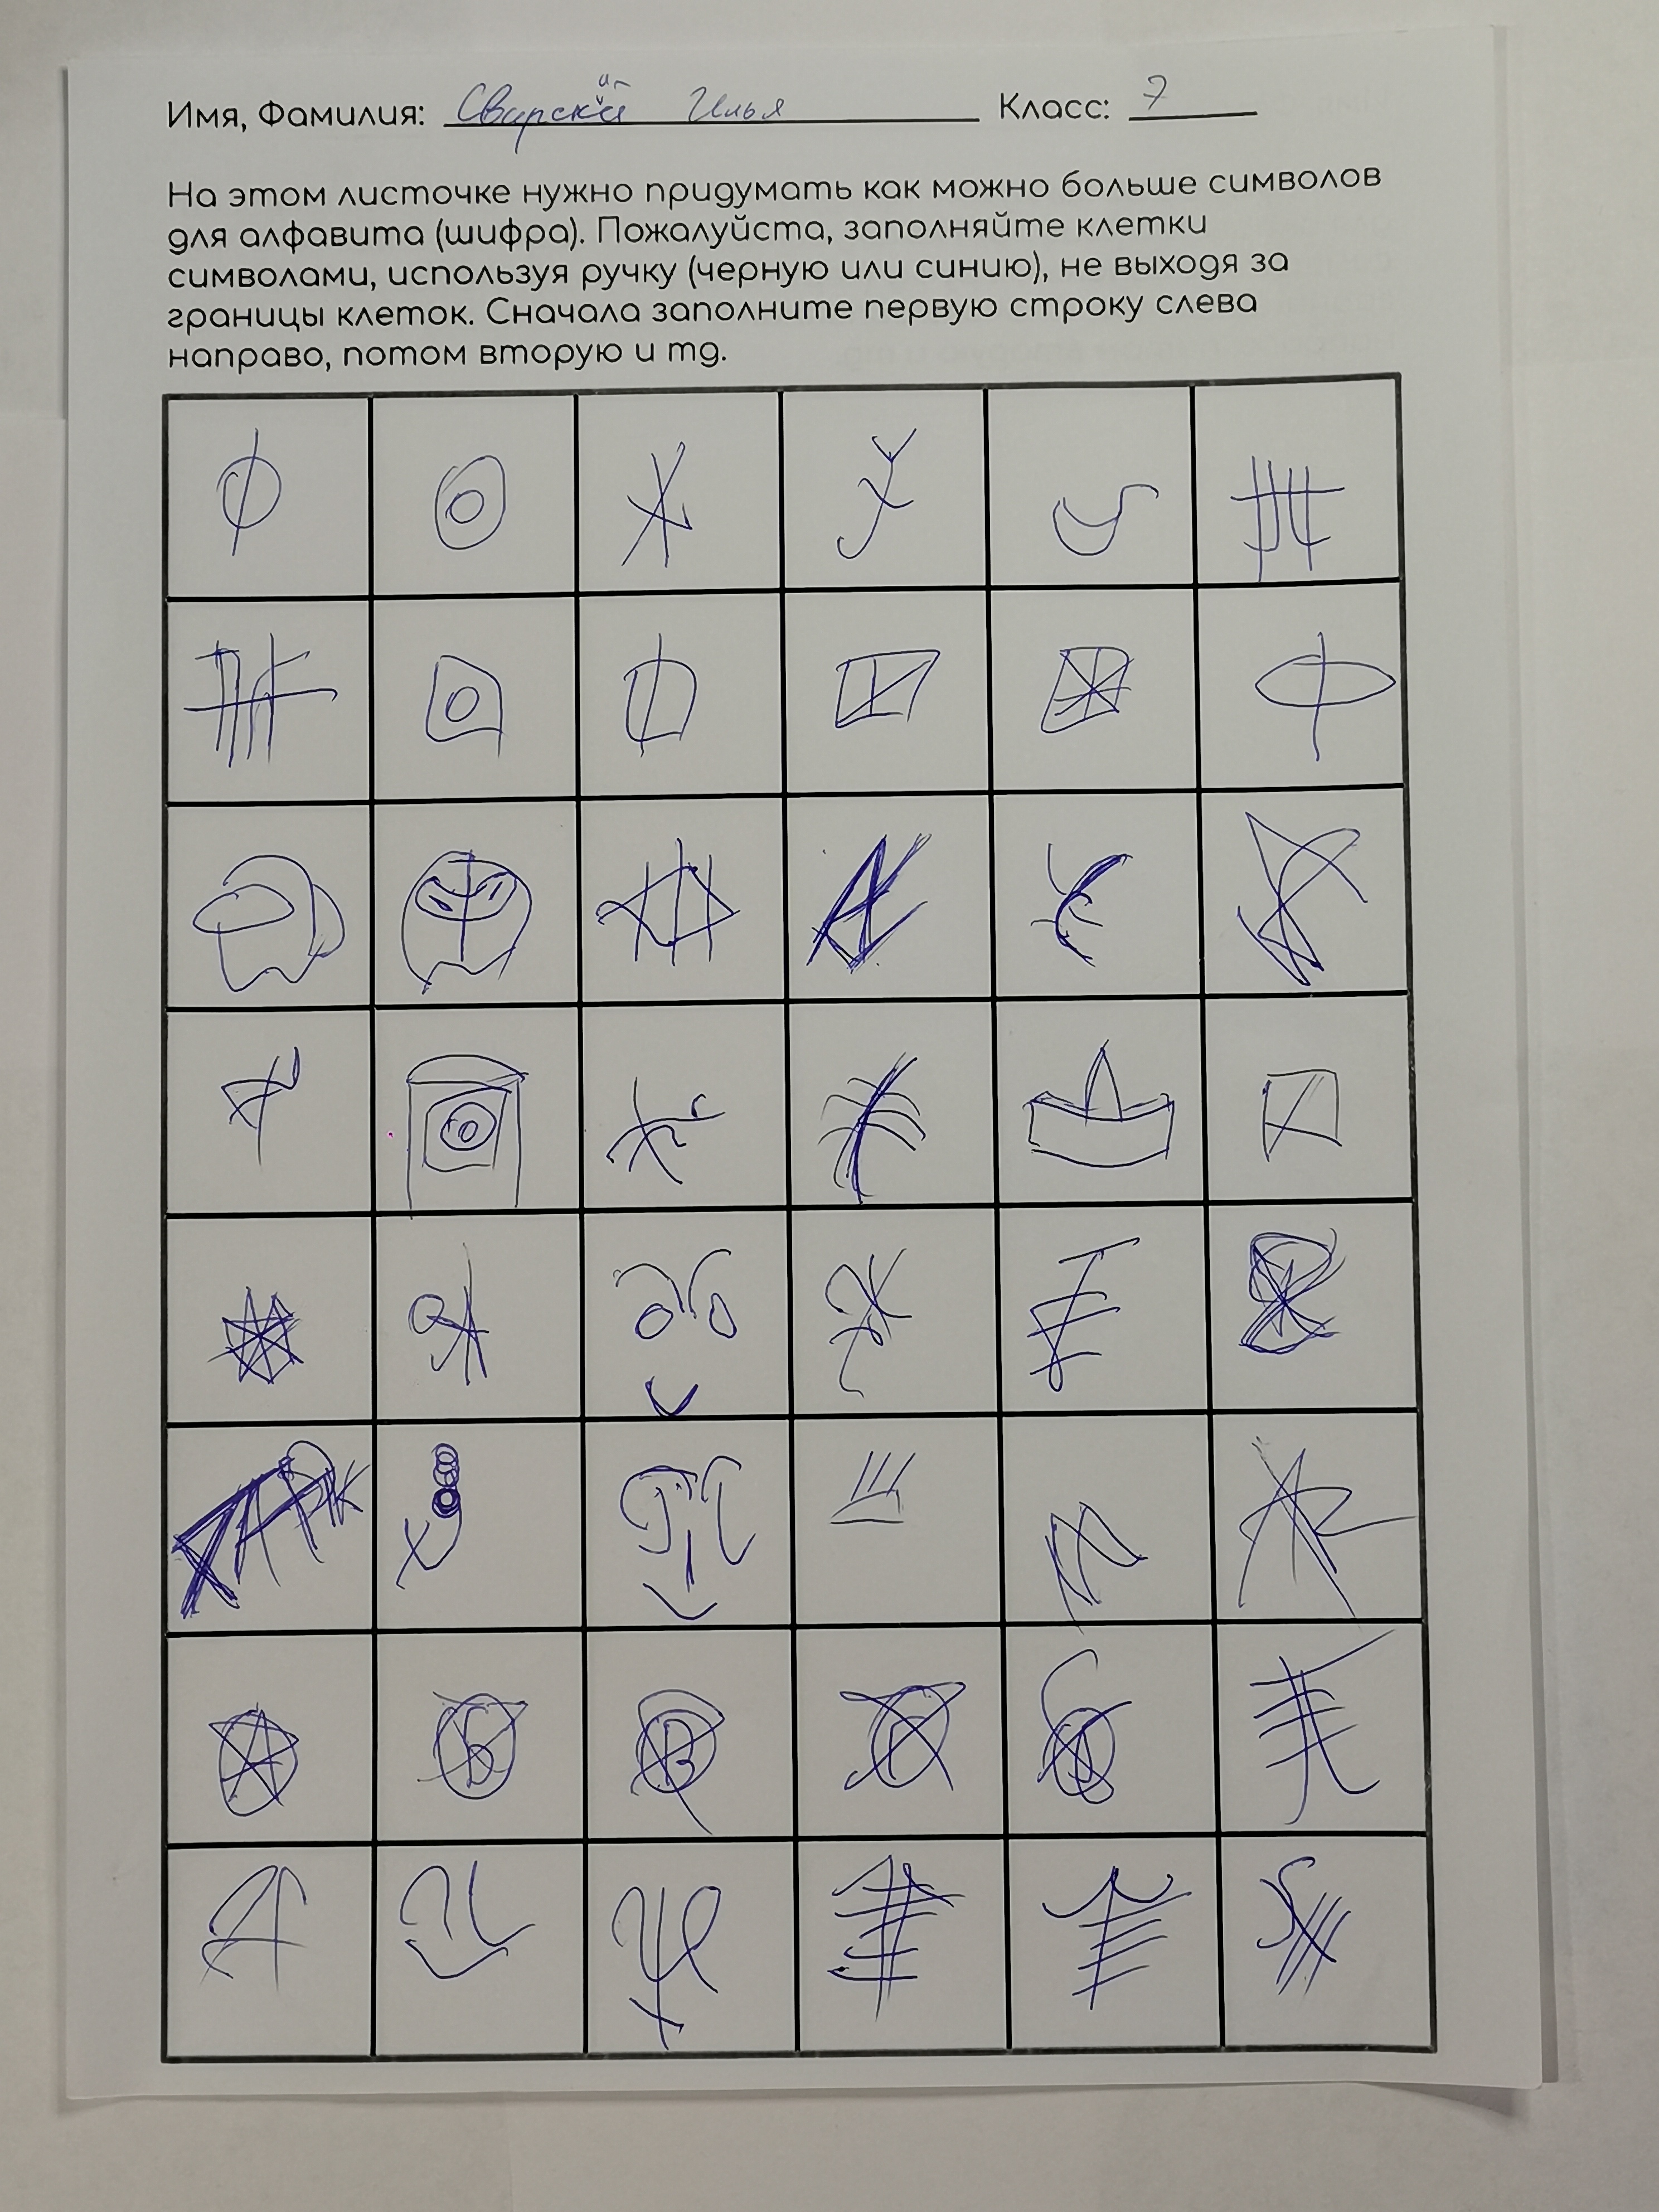 Имя, Фамилия: Свирский Илья Класс: 7
На этом листочке нужно придумать как можно больше символов
для алфавита (шифра). Пожалуйста, заполняйте клетки
символами, используя ручку (черную или синию), не выходя за
границы клеток. Сначала заполните первую строку слева
направо, потом вторую и тд.